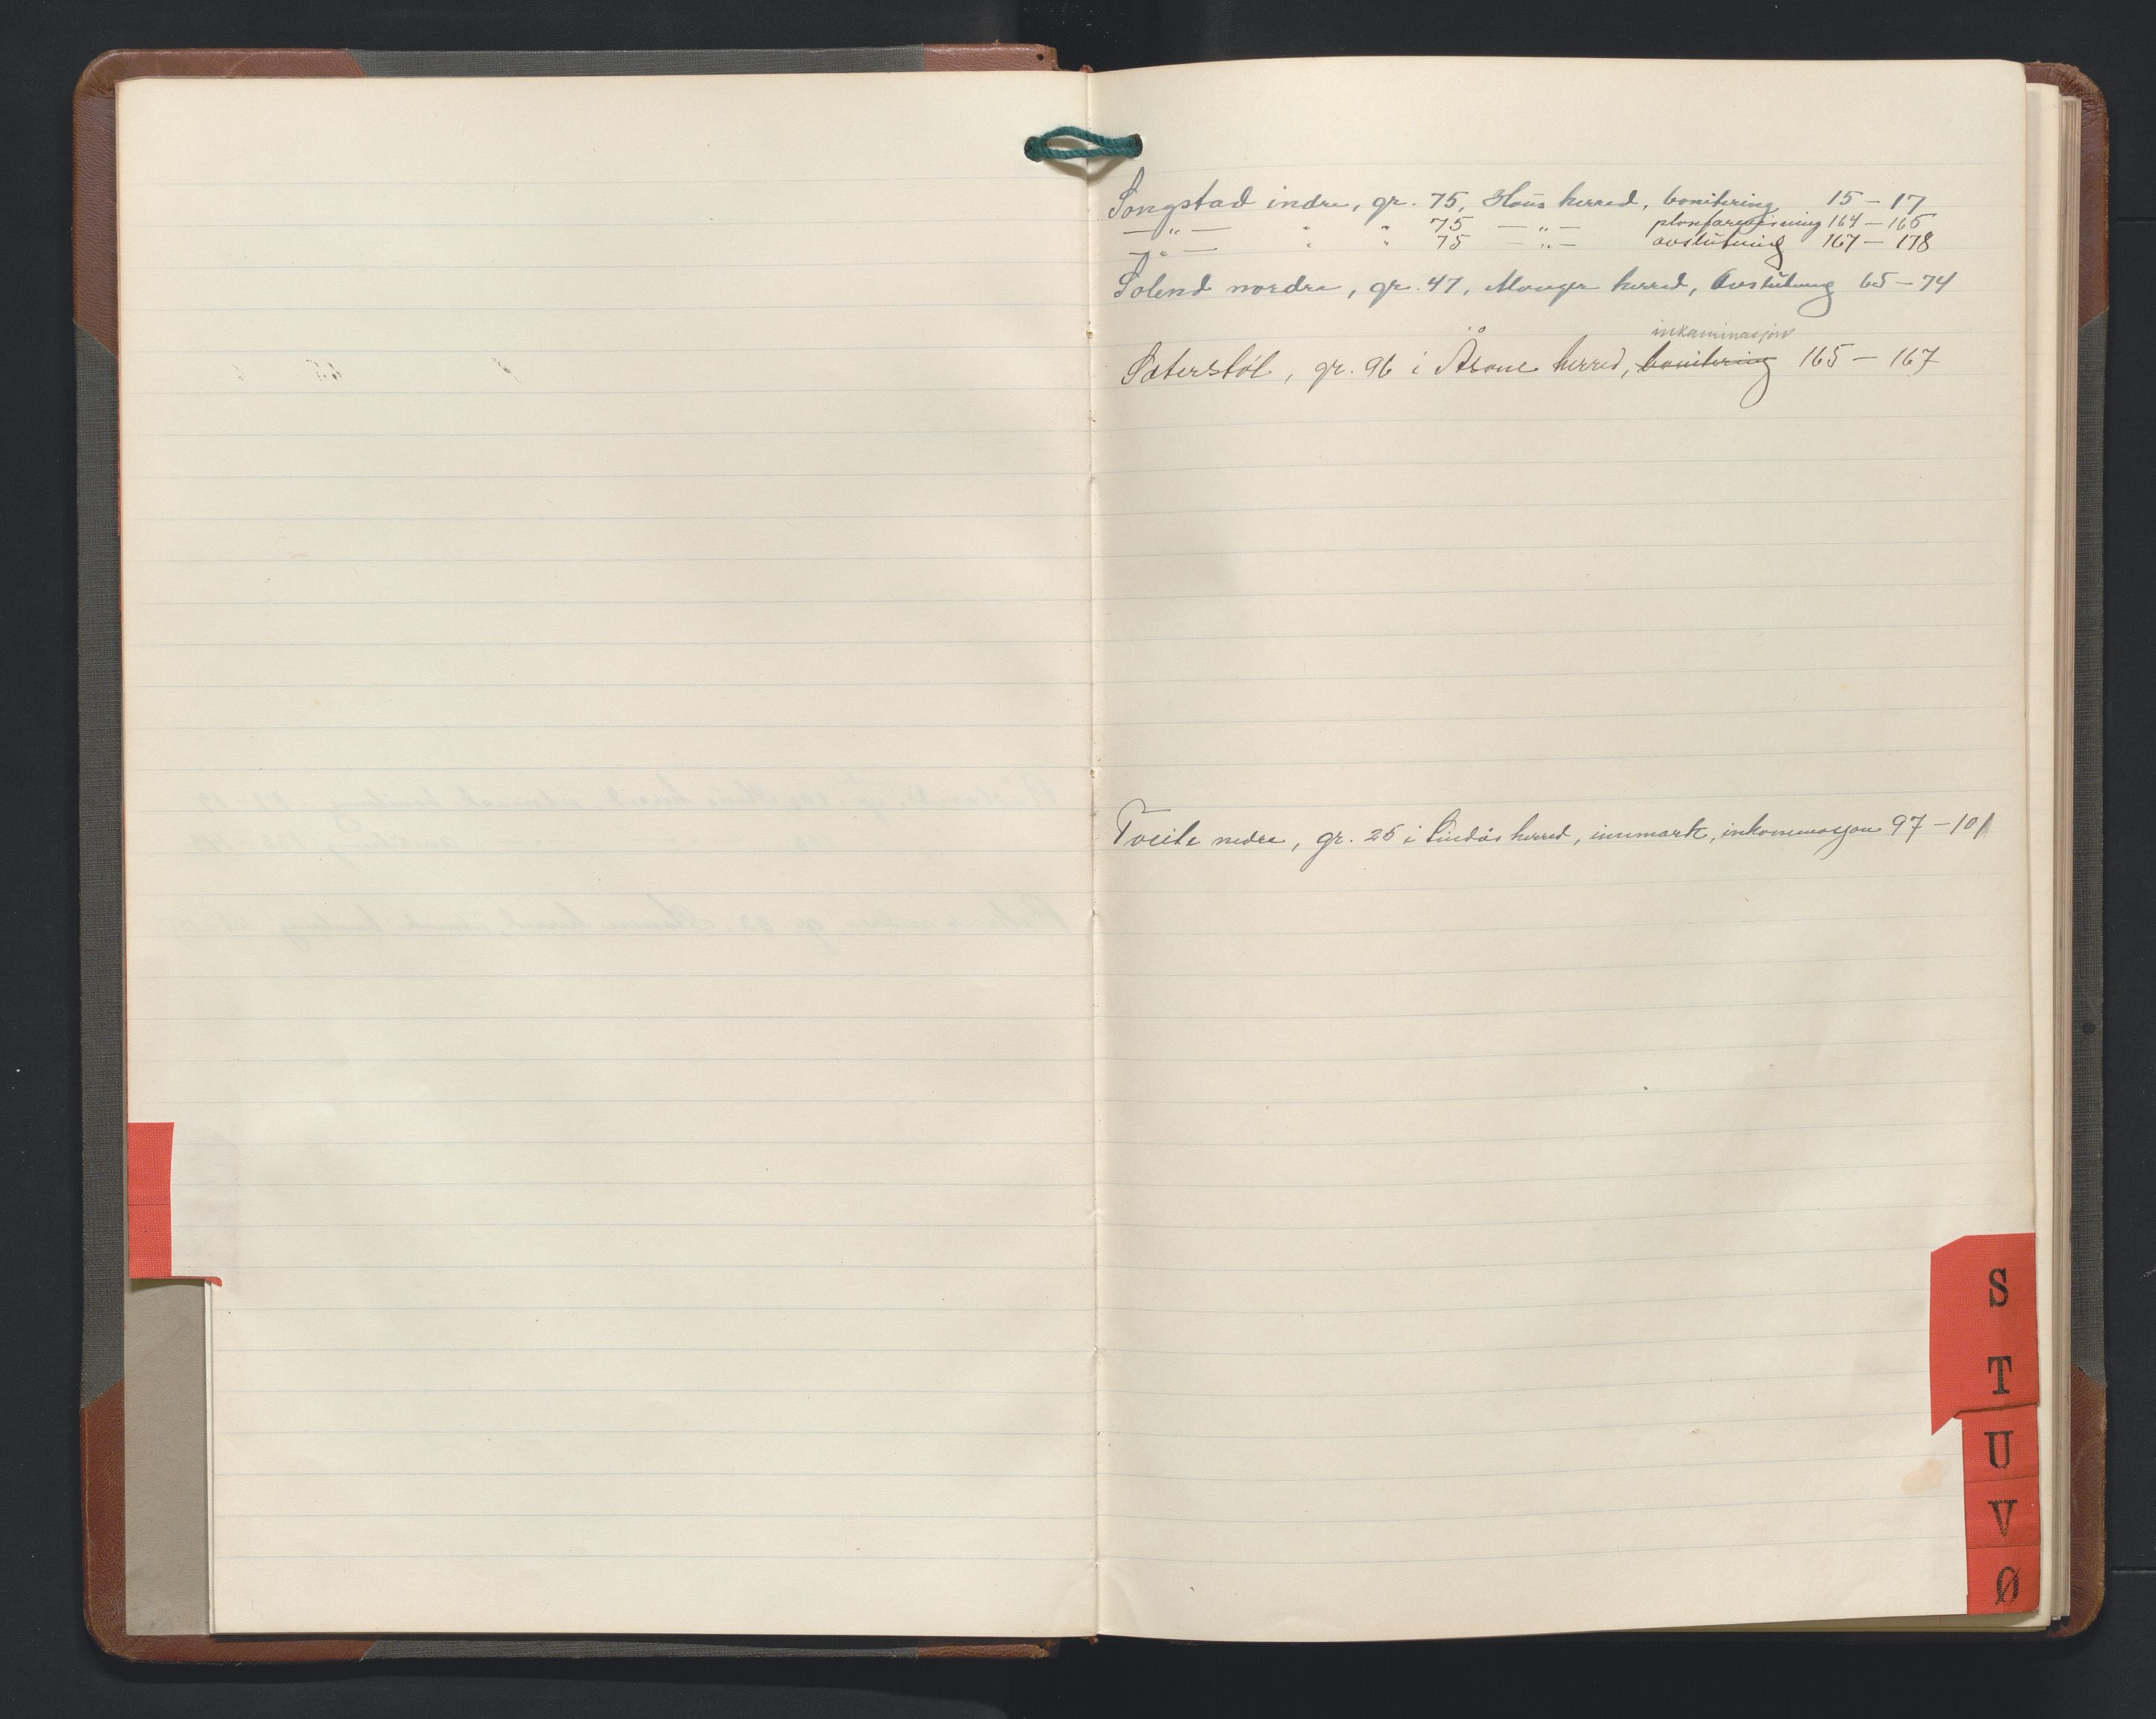 Songstad indre, gr. 75, Haus herred, bonitering 15 - 17
— " — " " 75 — " — planforevisning 164 - 165
— " — " " 75 — " — avslutning 167 - 178
Solend nordre, gr. 47, Manger herred, Avslutning 65 - 74
inkaminasjon
Sæterstøl, gr. 96 i Åsane herred, bonitering 165 - 167
Tveite nedre, gr. 25 i Lindås herred, innmark, inkaminasjon 97 - 101
S
T
U
V
Ø